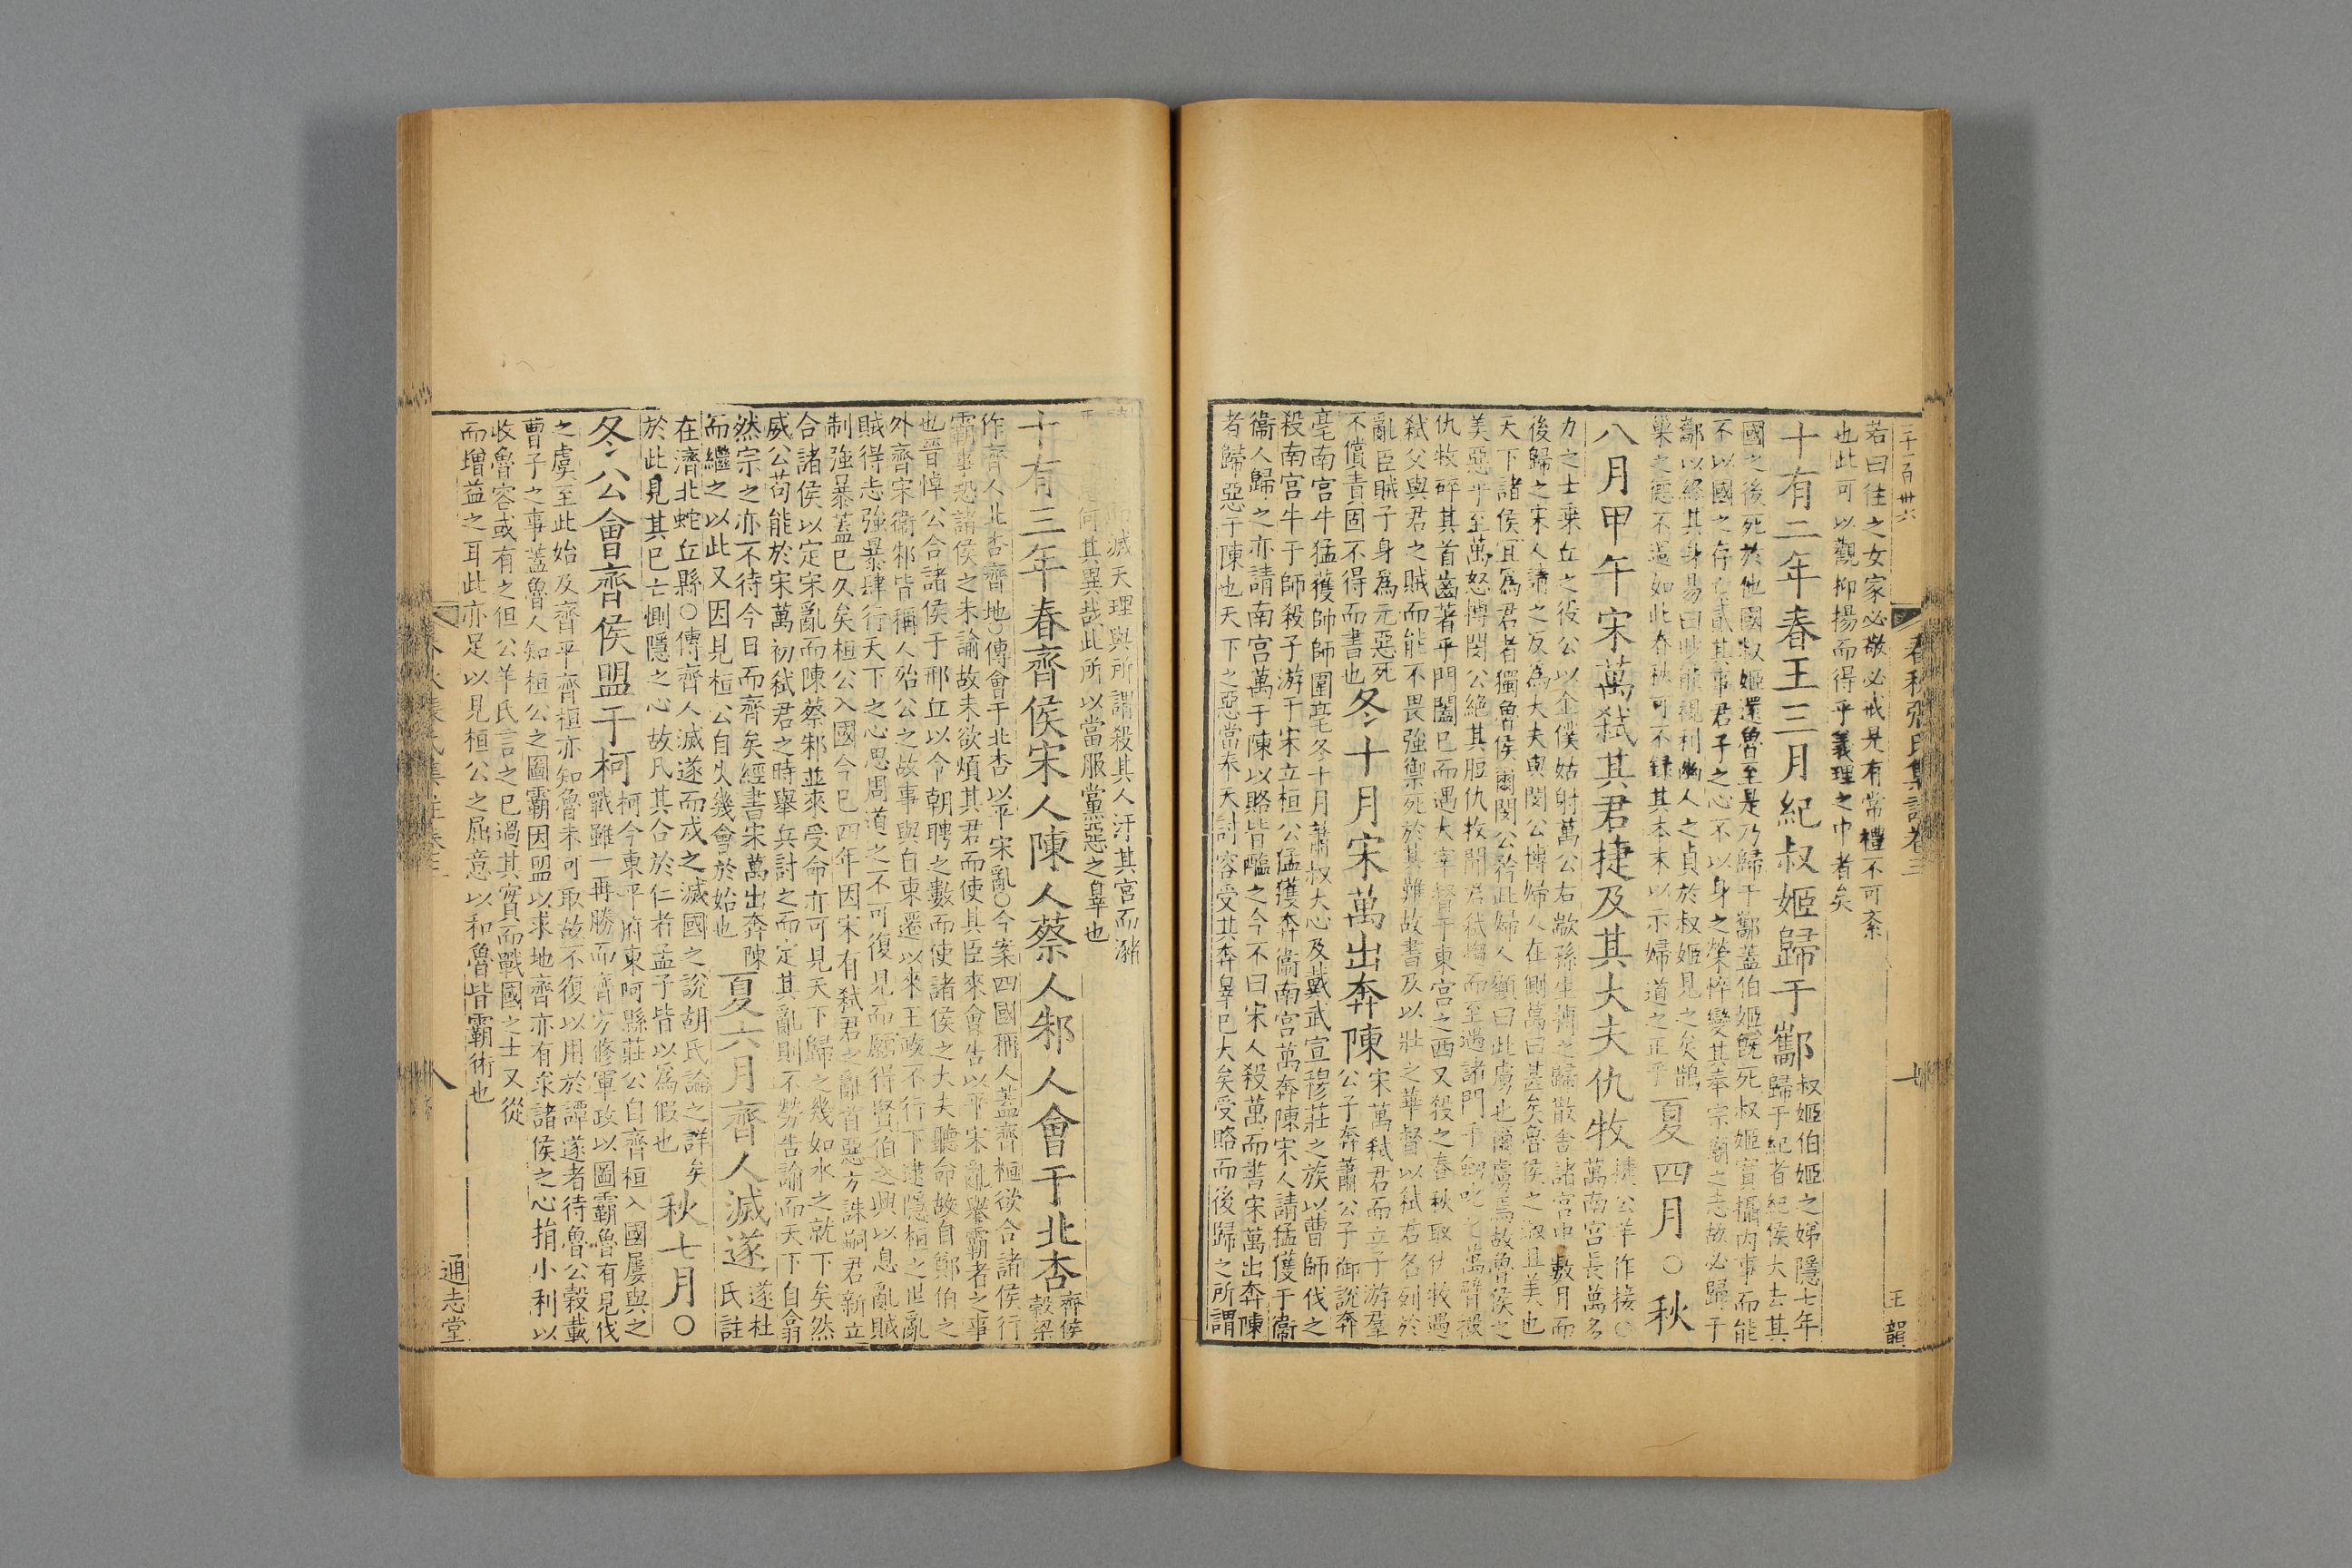 三千一百卅六
春秋張氏集註卷三
王韻
若曰往之女家必敬必戒是有常禮不可紊
也此可以觀抑揚而得乎義理之中者矣
十有二年春王三月紀叔姬歸于酅
叔姬伯姬之娣隱七年
歸于紀者紀侯大去其
國之後死於他國叔姬還魯至是乃歸于酅蓋伯姬旣死叔姬實攝内事而能
不以國之存亡貳其事君子之心不以身之榮悴變其奉宗廟之志故必歸于
酅以終其身易曰眇能視利幽人之貞於叔姬見之矣鵲
巢之德不過如此春秋可不錄其本末以示婦道之正乎
夏四月○秋
八月甲午宋萬弑其君捷及其大夫仇牧
捷公羊作接○
萬南宮長萬多
力之士乘丘之役公以金僕姑射萬公右歂孫生搏之歸散舍諸宮中數月而
後歸之宋人請之反爲大夫與閔公博婦人在側萬曰甚矣魯侯之淑且美也
天下諸侯宜爲君者獨魯侯爾閔公矜此婦人顧曰此虜也爾虜焉故魯侯之
美惡乎至萬怒搏閔公絶其脰仇牧聞君弑趨而至遇諸門手劒叱之萬臂摋
仇牧碎其首齒著乎門闔已而遇大宰督于東宮之西又殺之春秋取仇牧過
弑父與君之賊而能不畏強禦死於其難故書及以壯之華督以弑君名列於
亂臣賊子身爲元惡死
不償責固不得而書也
冬十月宋萬出奔陳
宋萬弑君而立子游羣
公子奔蕭公子御說奔
亳南宮牛猛獲帥師圍亳冬十月蕭叔大心及戴武宣穆莊之族以曹師伐之
殺南宮牛于師殺子游于宋立桓公猛獲奔衞南宮萬奔陳宋人請猛獲于衞
衞人歸之亦請南宮萬于陳以賂皆醢之今不曰宋人殺萬而書宋萬出奔陳
者歸惡于陳也天下之惡當奉天討容受其奔辠已大矣受賂而後歸之所謂
滅天理與所謂殺其人汙其宮而瀦
何其異哉此所以當服黨惡之辠也
十有三年春齊侯宋人陳人蔡人邾人會于北杏
齊侯
穀梁
作齊人北杏齊地○傳會于北杏以平宋亂○今案四國稱人蓋齊桓欲合諸侯行
霸事恐諸侯之未諭故未欲煩其君而使其臣來會告以平宋亂舉霸者之事
也晉悼公合諸侯于邢丘以令朝聘之數而使諸侯之大夫聽命故自鄭伯之
外齊宋衞邾皆稱人殆公之故事與自東遷以來王政不行下逮隱桓之世亂
賊得志強暴肆行天下之心思周道之不可復見而願得賢伯之興以息亂賊
制強暴蓋已久矣桓公入國今已四年因宋有弑君之亂首惡方誅嗣君新立
合諸侯以定宋亂而陳蔡邾並來受命亦可見天下歸之幾如水之就下矣然
威公苟能於宋萬初弑君之時舉兵討之而定其亂則不勞告諭而天下自翕
然宗之亦不待今日而齊矣經書宋萬出奔陳
而繼之以此又因見桓公自失幾會於始也
夏六月齊人滅遂
遂杜
氏註
在濟北蛇丘縣○傳齊人滅遂而戍之滅國之說胡氏論之詳矣
於此見其已亡惻隱之心故凡其合於仁者孟子皆以爲假也
秋七月○
冬公會齊侯盟于柯
柯今東平府東阿縣莊公自齊桓入國屢與之
戰雖一再勝而齊方修軍政以圖霸魯有見伐
之虞至此始及齊平齊桓亦知魯未可取故不復以用於譚遂者待魯公穀載
曹子之事蓋魯人知桓公之圖霸因盟以求地齊亦有求諸侯之心捐小利以
收魯容或有之但公羊氏言之已過其實而戰國之士又從
而增益之耳此亦足以見桓公之屈意以和魯皆霸術也
春秋張氏集註卷三
八
通志堂